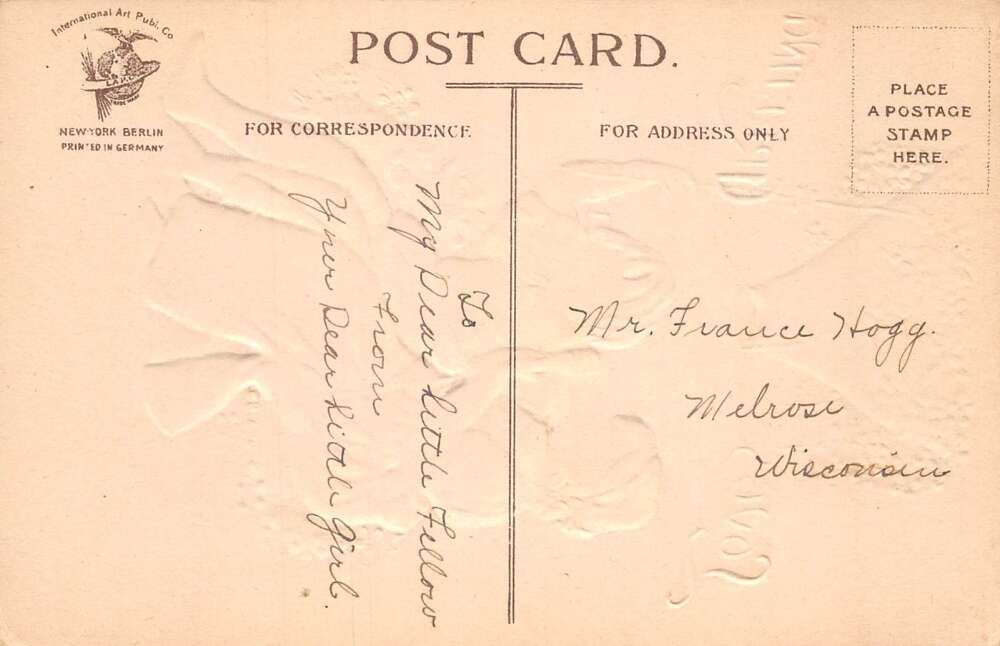 International Art Publ. Co
NEW YORK BERLIN
PRINTED IN GERMANY
POST CARD.
FOR CORRESPONDENCE
FOR ADDRESS ONLY
PLACE
A POSTAGE
STAMP
HERE.
To
My Dear Little Fellow
From
Your Dear Little Girl.
Mr. France Hogg.
Melrose
Wisconsin